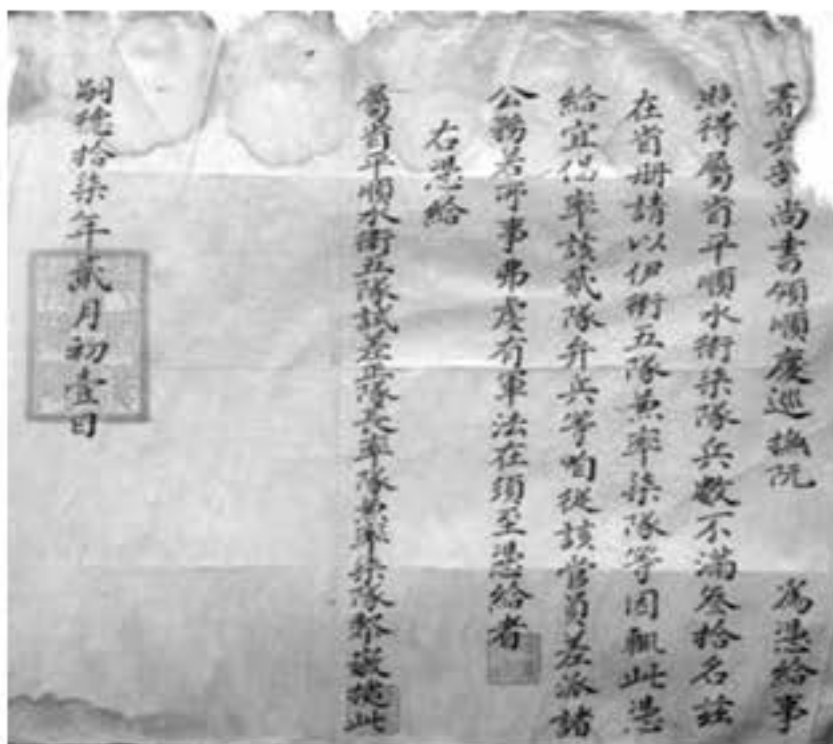 署兵部尚書領順慶巡撫阮 為憑給事
照得屬省平順水衛柒隊兵數不滿叁拾名茲
在省册請以伊衛五隊兼率柒隊等因輒此憑
給宜仍率該貳隊弁兵等咱從該管員差派諸
公務若所事弗虔有軍法在須至憑給者
右憑給
屬省平順水衛五隊試差正隊長率隊兼率柒隊 據此
嗣德拾柒年貳月初壹日